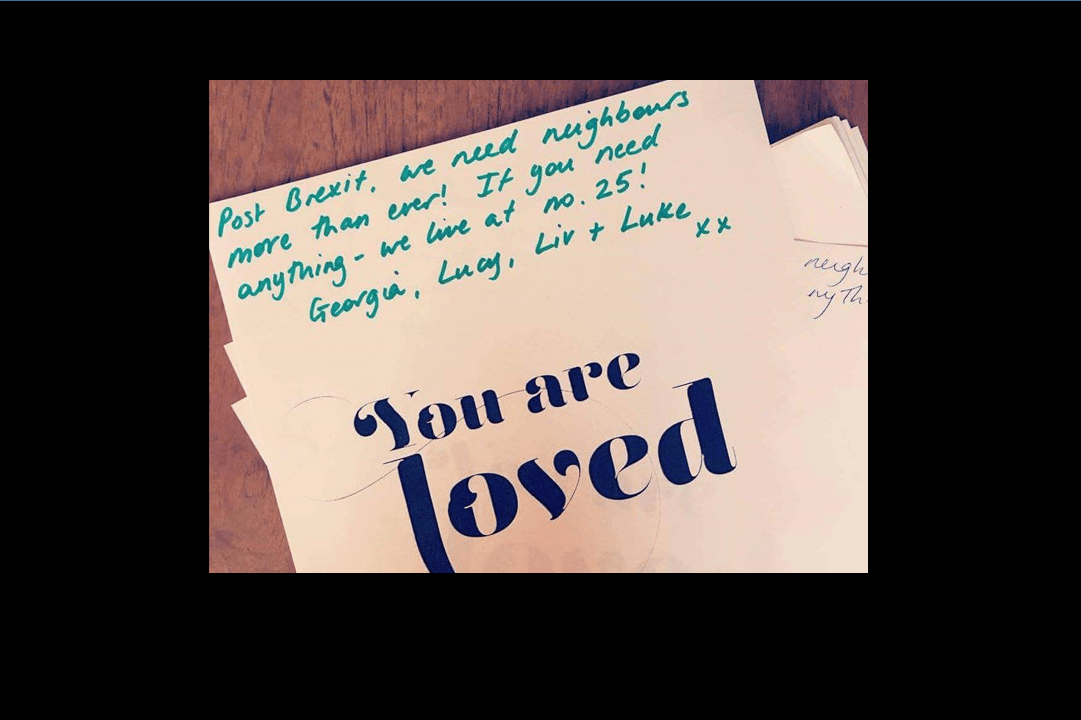 Post Brexit, we need neighbours
more than ever! If you need
anything - we live at no. 25!
Georgia, Lucy, Liv + Luke xx
You are
loved